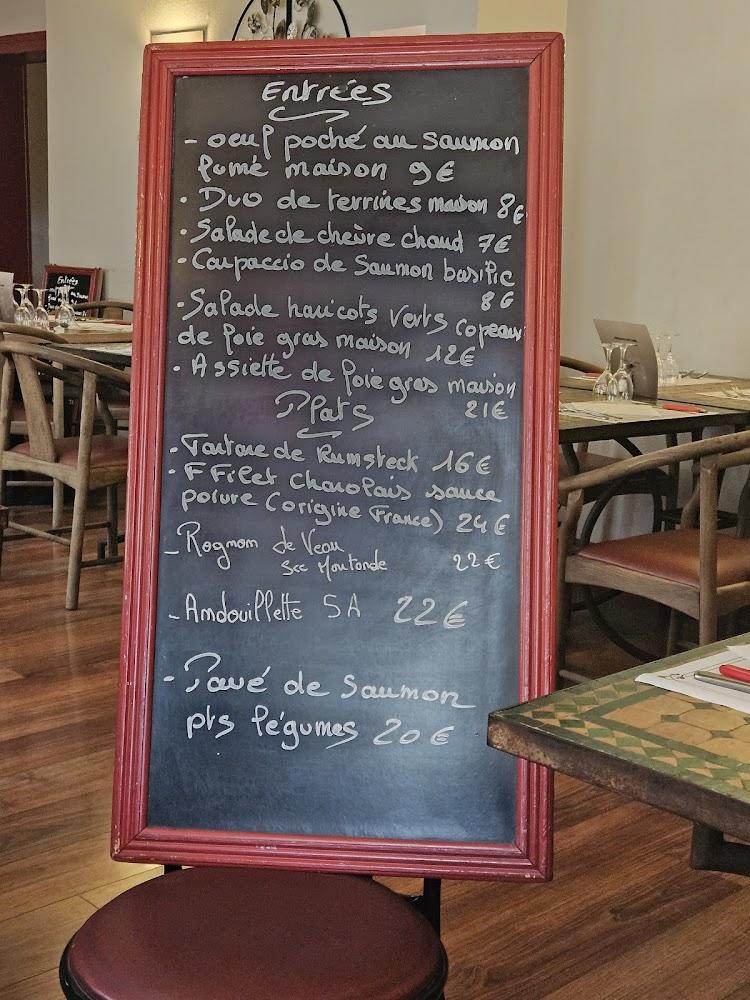 Entrées
- oeuf poché au saumon
fumé maison 9€
· Duo de terrines maison 8€
· Salade de chèvre chaud 7€
· Carpaccio de Saumon basilic
8€
· Salade haricots verts copeaux
de foie gras maison 12€
· Assiette de foie gras maison
21€
Plats
· Tartare de Rumsteck 16€
· FFilet Charolais sauce
poivre (origine France) 24€
- Rognon de Veau
Sce Moutarde 22€
- Andouillette 5A 22€
· Pavé de saumon
pts légumes 20€
Entrées